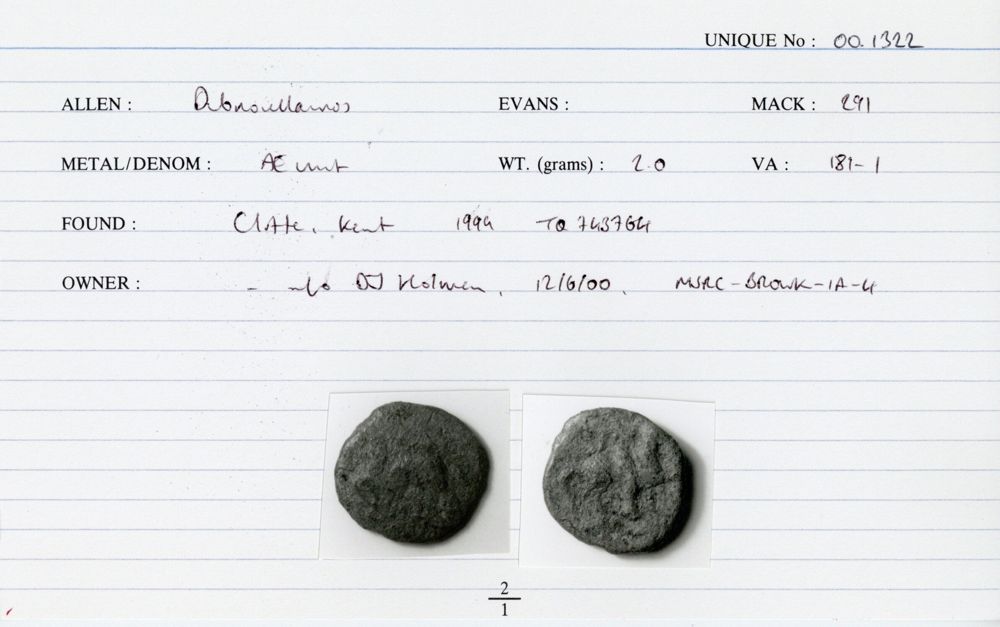 UNIQUE No : 00.1322
ALLEN : Dubnovellaunos EVANS : MACK : 291
METAL/DENOM : AE unit WT. (grams) : 2.0 VA : 181-1
FOUND : Cliffe, Kent 1994 TQ 743764
OWNER : - info DJ Holman, 12/6/00,
2
1